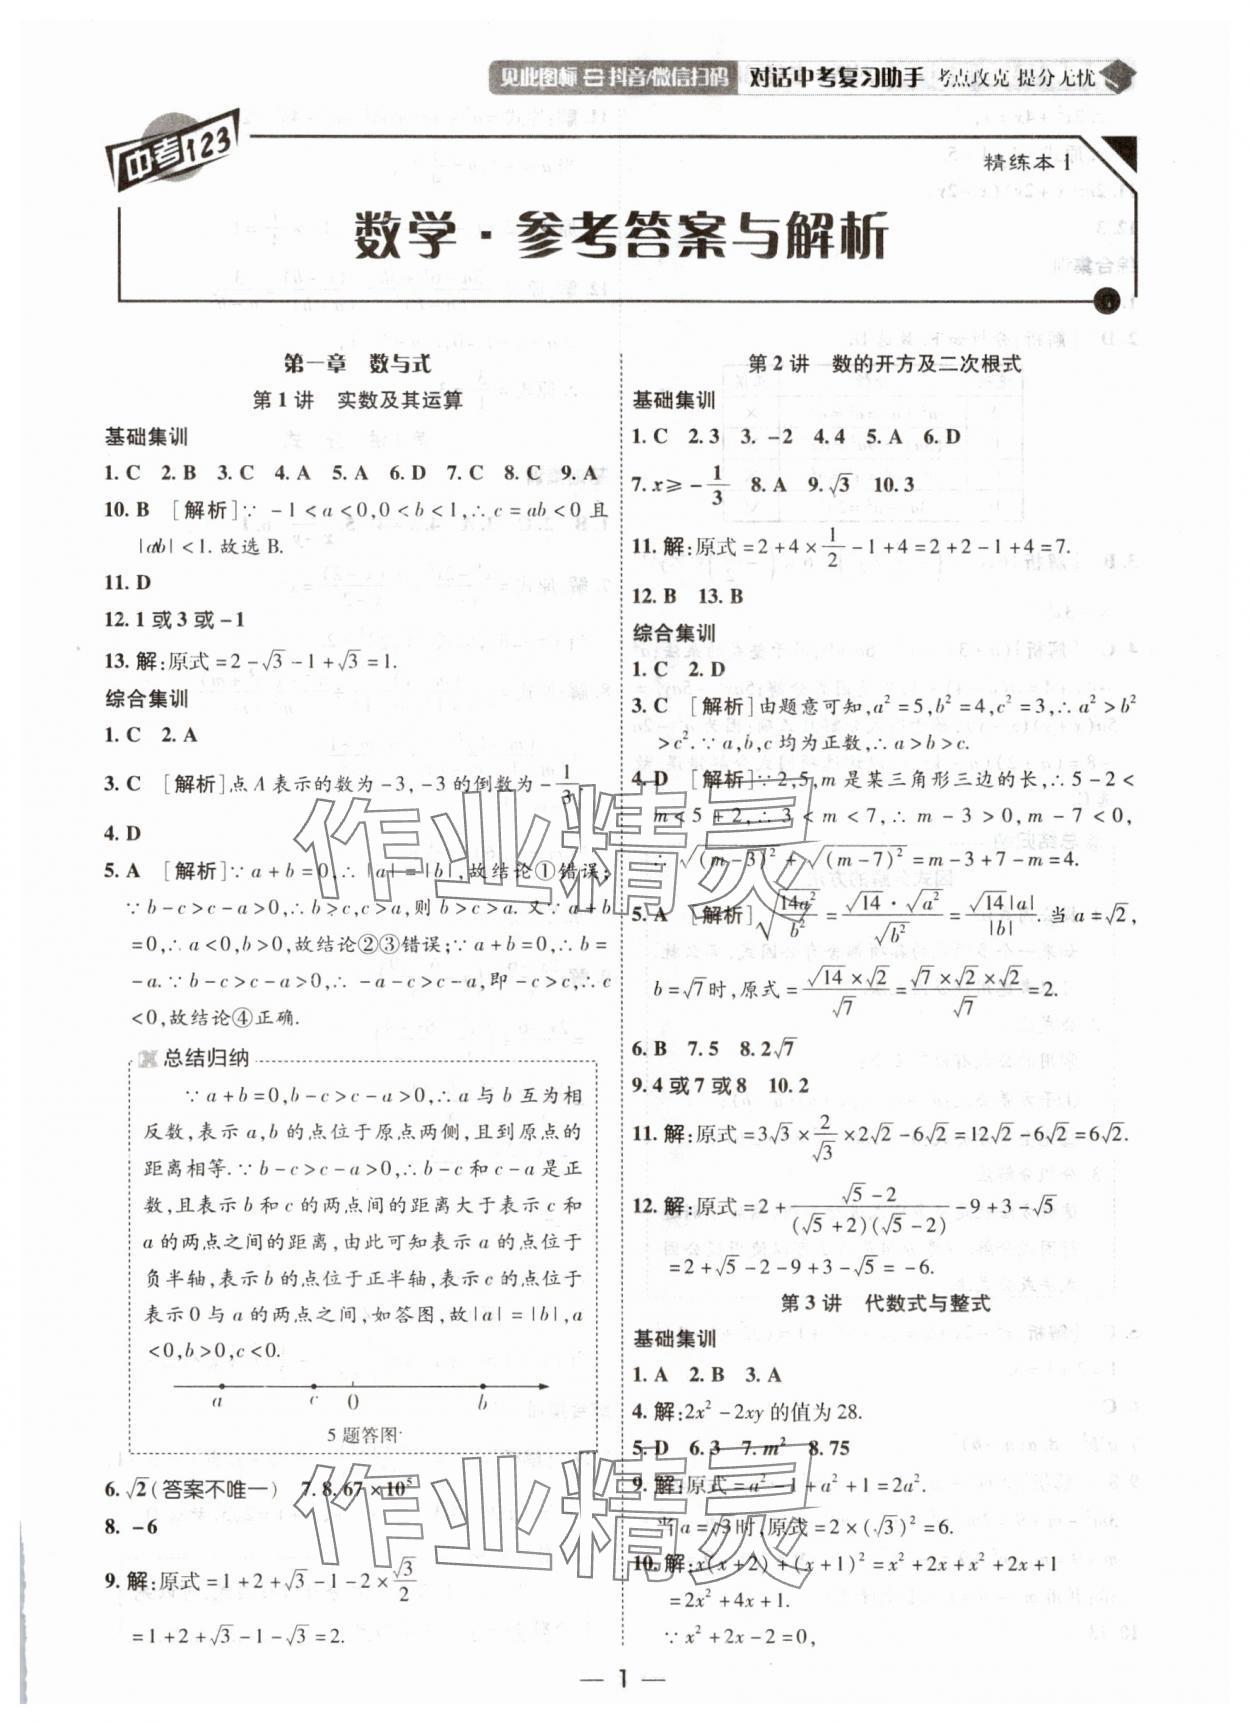 见此图标 抖音/微信扫码 对话中考复习助手 考点攻克 提分无忧
中考123
精练本1
数学·参考答案与解析
第一章 数与式
第1讲 实数及其运算
基础集训
1. C 2. B 3. C 4. A 5. A 6. D 7. C 8. C 9. A
10. B [解析]∵ -1<a<0,0<b<1,∴c=ab<0且
|ab|<1. 故选B.
11. D
12. 1或3或-1
13. 解:原式=2-√3-1+√3=1.
综合集训
1. C 2. A
3. C [解析]点A表示的数为-3,-3的倒数为-1/3.
4. D
5. A [解析]∵a+b=0,∴|a|=|b|,故结论①错误;
∵b-c>c-a>0,∴b>c,c>a,则b>c>a. 又∵a+b
=0,∴a<0,b>0,故结论②③错误;∵a+b=0,∴b=
-a.∵b-c>c-a>0,∴-a-c>c-a,即-c>c,∴c
<0,故结论④正确.
总结归纳
∵a+b=0,b-c>c-a>0,∴a与b互为相
反数,表示a,b的点位于原点两侧,且到原点的
距离相等.∵b-c>c-a>0,∴b-c和c-a是正
数,且表示b和c的两点间的距离大于表示c和
a的两点之间的距离,由此可知表示a的点位于
负半轴,表示b的点位于正半轴,表示c的点位于
表示0与a的两点之间,如答图,故|a|=|b|,a
<0,b>0,c<0.
a c 0 b
5题答图
6. √2(答案不唯一) 7. 8.67×10⁵
8. -6
9. 解:原式=1+2+√3-1-2×√3/2
=1+2+√3-1-√3=2.
第2讲 数的开方及二次根式
基础集训
1. C 2. 3 3. -2 4. 4 5. A 6. D
7. x≥-1/3 8. A 9. √3 10. 3
11. 解:原式=2+4×1/2-1+4=2+2-1+4=7.
12. B 13. B
综合集训
1. C 2. D
3. C [解析]由题意可知,a²=5,b²=4,c²=3,∴a²>b²
>c².∵a,b,c均为正数,∴a>b>c.
4. D [解析]∵2,5,m是某三角形三边的长,∴5-2<
m<5+2,∴3<m<7,∴m-3>0,m-7<0,
∴√(m-3)²+√(m-7)²=m-3+7-m=4.
5. A [解析]√(14a²/b²)=(√14·√a²)/√b²=√14|a|/|b|. 当a=√2,
b=√7时,原式=(√14×√2)/√7=(√7×√2×√2)/√7=2.
6. B 7. 5 8. 2√7
9. 4或7或8 10. 2
11. 解:原式=3√3×2/√3×2√2-6√2=12√2-6√2=6√2.
12. 解:原式=2+(√5-2)/((√5+2)(√5-2))-9+3-√5
=2+√5-2-9+3-√5=-6.
第3讲 代数式与整式
基础集训
1. A 2. B 3. A
4. 解:2x²-2xy的值为28.
5. D 6. 3 7. m² 8. 75
9. 解:原式=a²-1+a²+1=2a².
当a=√3时,原式=2×(√3)²=6.
10. 解:x(x+2)+(x+1)²=x²+2x+x²+2x+1
=2x²+4x+1.
∵x²+2x-2=0,
— 1 —
作业精灵
作业精灵